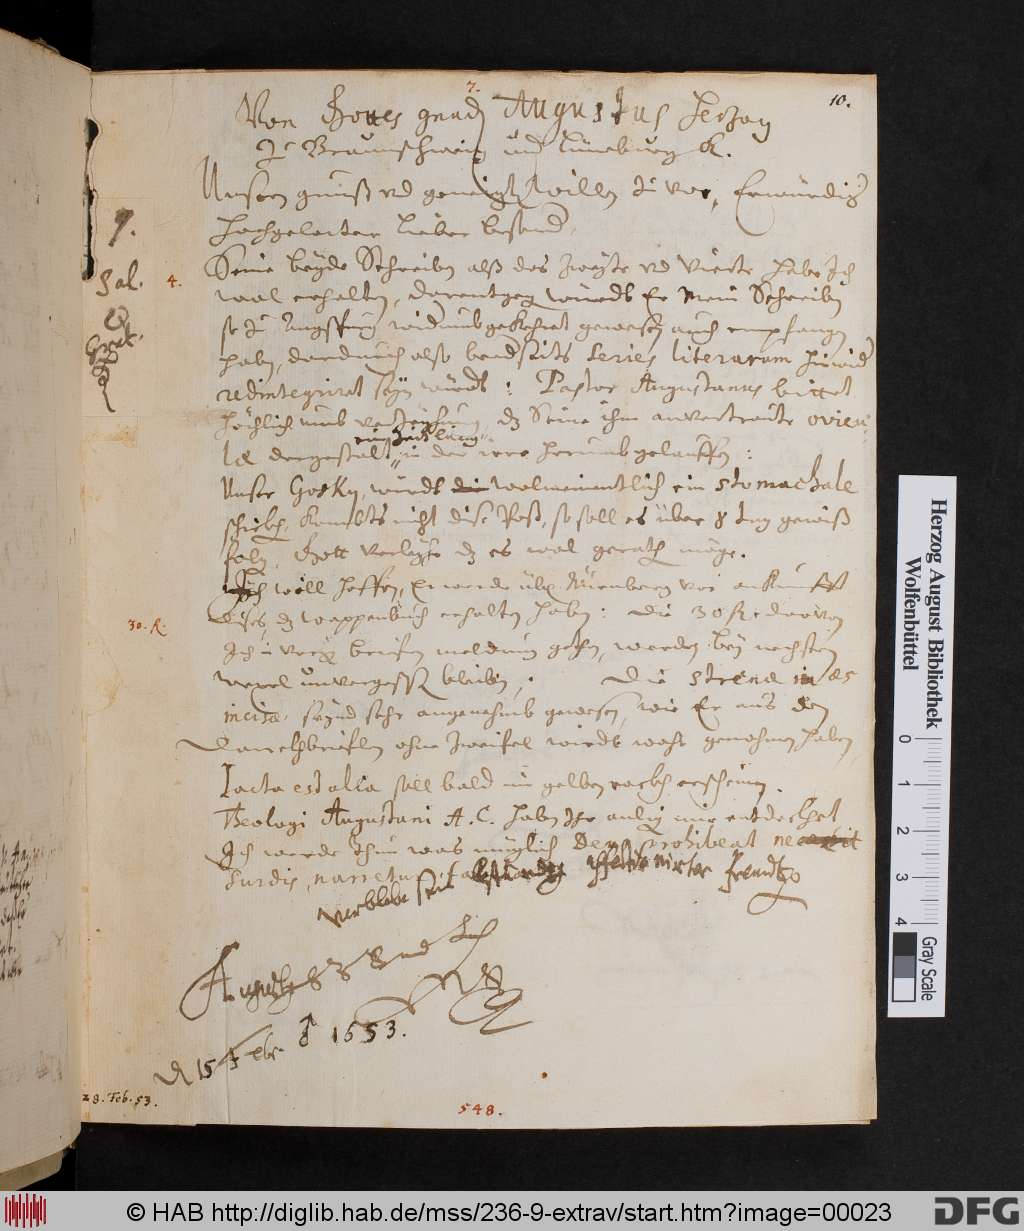 7.
10.
Von Gottes gnad Augustus Herzog
zu Braunschweig und Lüneburg &.
Unsern gruß vd geneigt willen zu vor, Ehrwürdig
Hochgelarter Lieber besond.
4.
Seine beyde Schreiben alß das zweyte vd vierte habe Ich
wol erhalten, darentgeg würdt Er Mein Schreiben
so zu widumb gekehret gewesen auch empfangen
haben, dardurch also beederseits series literarum hinwid
redintegriret seyn würdt: Pastor Augustanus bittet
höchlich umb verzeihung, dz Seine ihm anvertraute ovicu
eintzeitlang
læ dergestalt in der irre herumb gelauffen:
Unser Gosky, würdt wolmeinentlich ein stomachale
schicken, kombts nicht dise Post, so soll es über 8 tag gewiß
folgen, Gott verleyhe dz es wol gerath möge.
Ich will hoffen, Er werde über Nürenberg vor ankunfft
30. R.
dises, dz wappenbuch erhalten haben: die 30 R. darvon
Ich in vorig briefen meldung gethan, werden bey nechsten
wexel unvergessen bleiben. Die strenæ in æs
incisæ, seynd sehr angenehmb gewesen, wie Er aus den
Danckhbrieflen ohne zweifel würdt wahr genohmen haben,
Iacta est alia soll bald im gelben rockh erscheinen.
Theologi Augustani A. C. haben Ihr anlig mir entdecket
Ich werde Ihnen was müglich Deus prohibeat ne
surdis narretur fa
verbleibe sein
Augustus
d 15 Febr. ♂ 1653.
9.
Sal.
Q
28. Feb. 53.
548.
Herzog August Bibliothek
Wolfenbüttel
0 1 2 3 4
Gray Scale
© HAB http://diglib.hab.de/mss/236-9-extrav/start.htm?image=00023
DFG